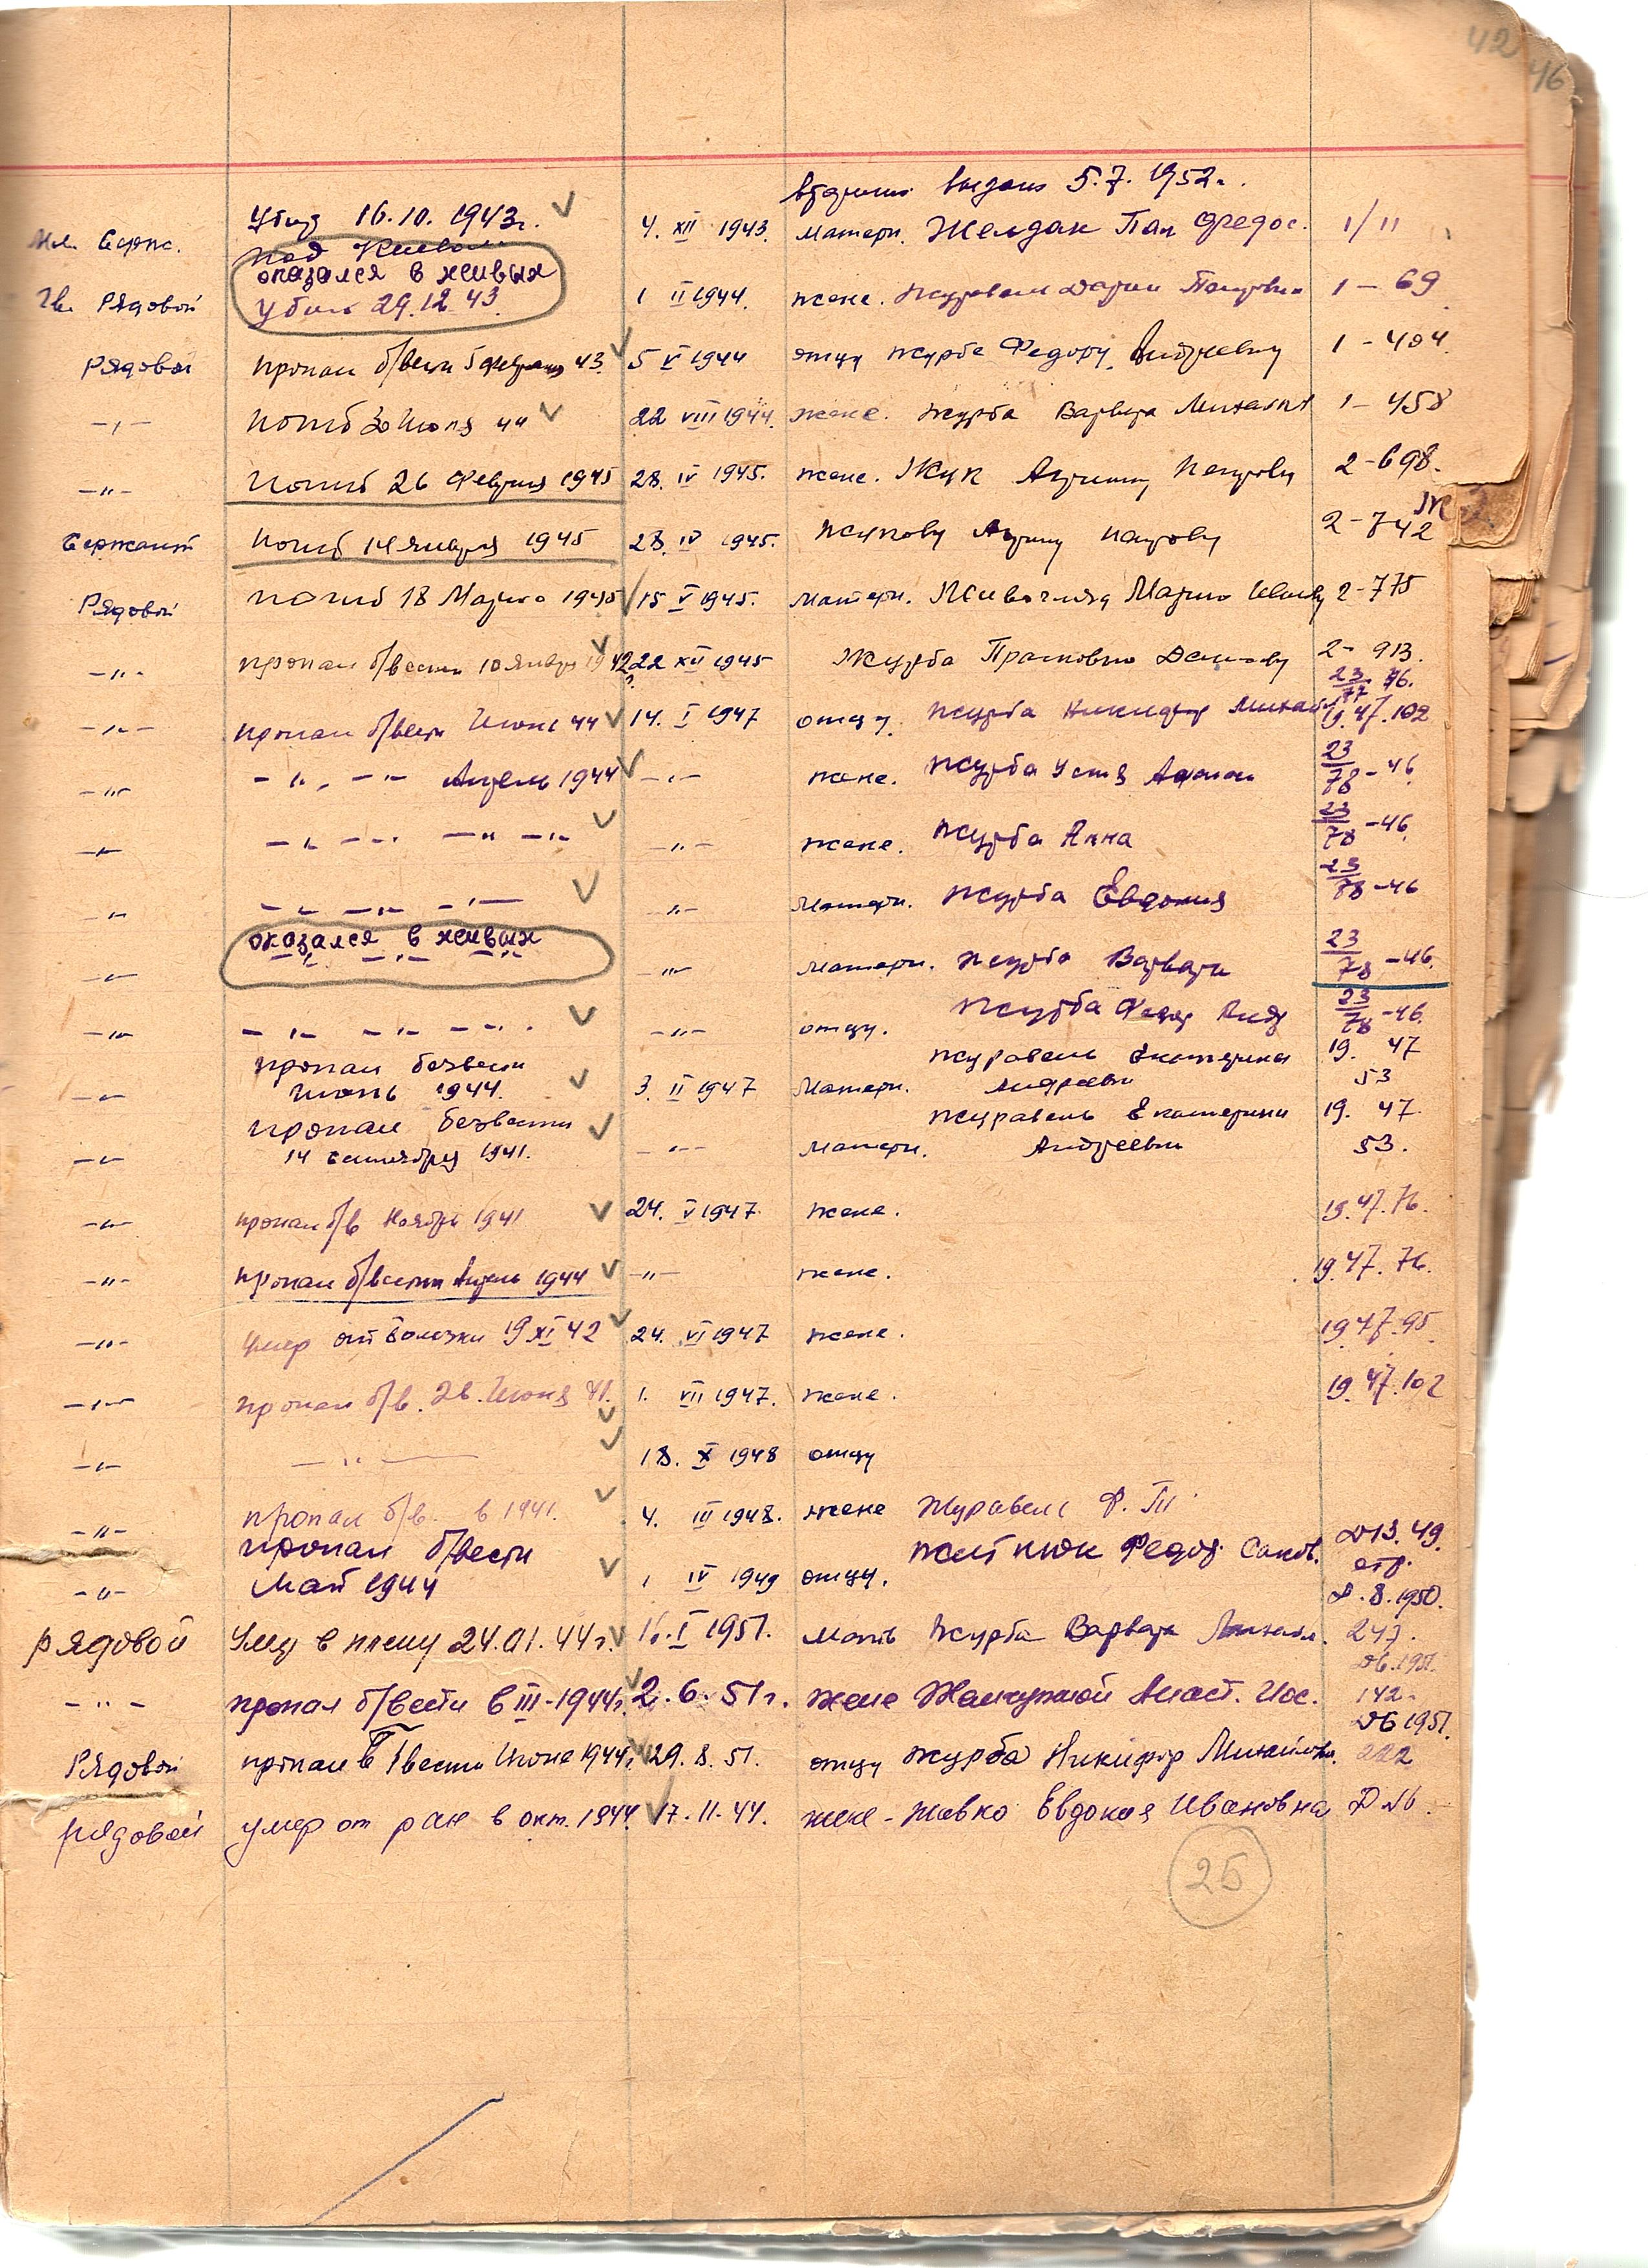 42
46
вторично выдано 5.7.1952г.
Мл. Серж. Убит 16.10.1943г. 4. XII 1943. матери. Жельдак Пел Федос. 1/11
под Киевом
оказался в живых
Гв. Рядовой убит 29.12.43. 1 II 1944. жене. Журавель Дарии Петровне 1-69
Рядовой пропал б/вести 5 февраля 43. 5 V 1944 отцу Журбе Федору Андреевичу 1-404.
-"- погиб 30 июля 44 22 VIII 1944. жене. Журба Варвара 1-458
-"- погиб 26 Февраля 1945 28. IV 1945. жене. Жук 2-698.
Ж
Сержант погиб 14 января 1945 28. IV 1945. Жукову 2-742
Рядовой погиб 18 Марта 1945 15 V 1945. матери. Мария 2-775
-"- пропал б/вести 10 января 1942г. 22 XII 1945 Журба 2-913.
23/77 46.
-"- пропал б/вести Июнь 44 14. I 1947 отцу. Журба Никифор Михайл 19.47.102
-"- -"- -"- Апрель 1944 -"- жене. Журба Устя 23/78-46
-"- -"- -"- -"- -"- -"- жене. Журба Анна 23/78-46.
-"- -"- -"- -"- -"- матери. Журба Евдокия 23/78-46
оказался в живых
-"- -"- -"- -"- -"- матери. Журба Варвара 23/78-46.
-"- -"- -"- -"- -"- отцу. Журба Федор Андр 23/78-46.
пропал безвести Журавель Екатерина 19. 47
-"- июнь 1944. 3. II 1947 матери. Андреевн 53
пропал безвести Журавель Екатерина 19. 47.
-"- 14 сентября 1941. -"- матери. Андреевн 53.
-"- пропал б/в Ноябрь 1941 24. V 1947. жене. 19.47.76.
-"- пропал б/вести Апрель 1944 -"- жене. 19.47.76.
-"- умер от болезни 19 XI 42 24. VI 1947 жене. 19.47.95
-"- пропал б/в. Июня 41. 1. VII 1947. жене. 19.47.102
-"- -"- 18. X 1948 отцу
-"- пропал б/в. в 1941. 4. III 1948. жене Журавель Ф. П
пропал б/вести Федор 13.49.
-"- май 1944 1 IV 1949 отцу. стр.
8.1950.
рядовой Умер в плену 24.01.44г. I 1951. мать Журба Варвара 247.
Д6.1951.
-"- пропал б/вести в III-1944г. 2.6.51г. жене Анаст. Иос. 142.
Д6 1951.
Рядовой пропал б/вести Июне 1944г. 29.8.51. отцу Журба Никифор Михайлов. 222
рядовой умер от ран в окт. 1944. 17.11.44. жене - Жавко Евдокия Ивановна
25